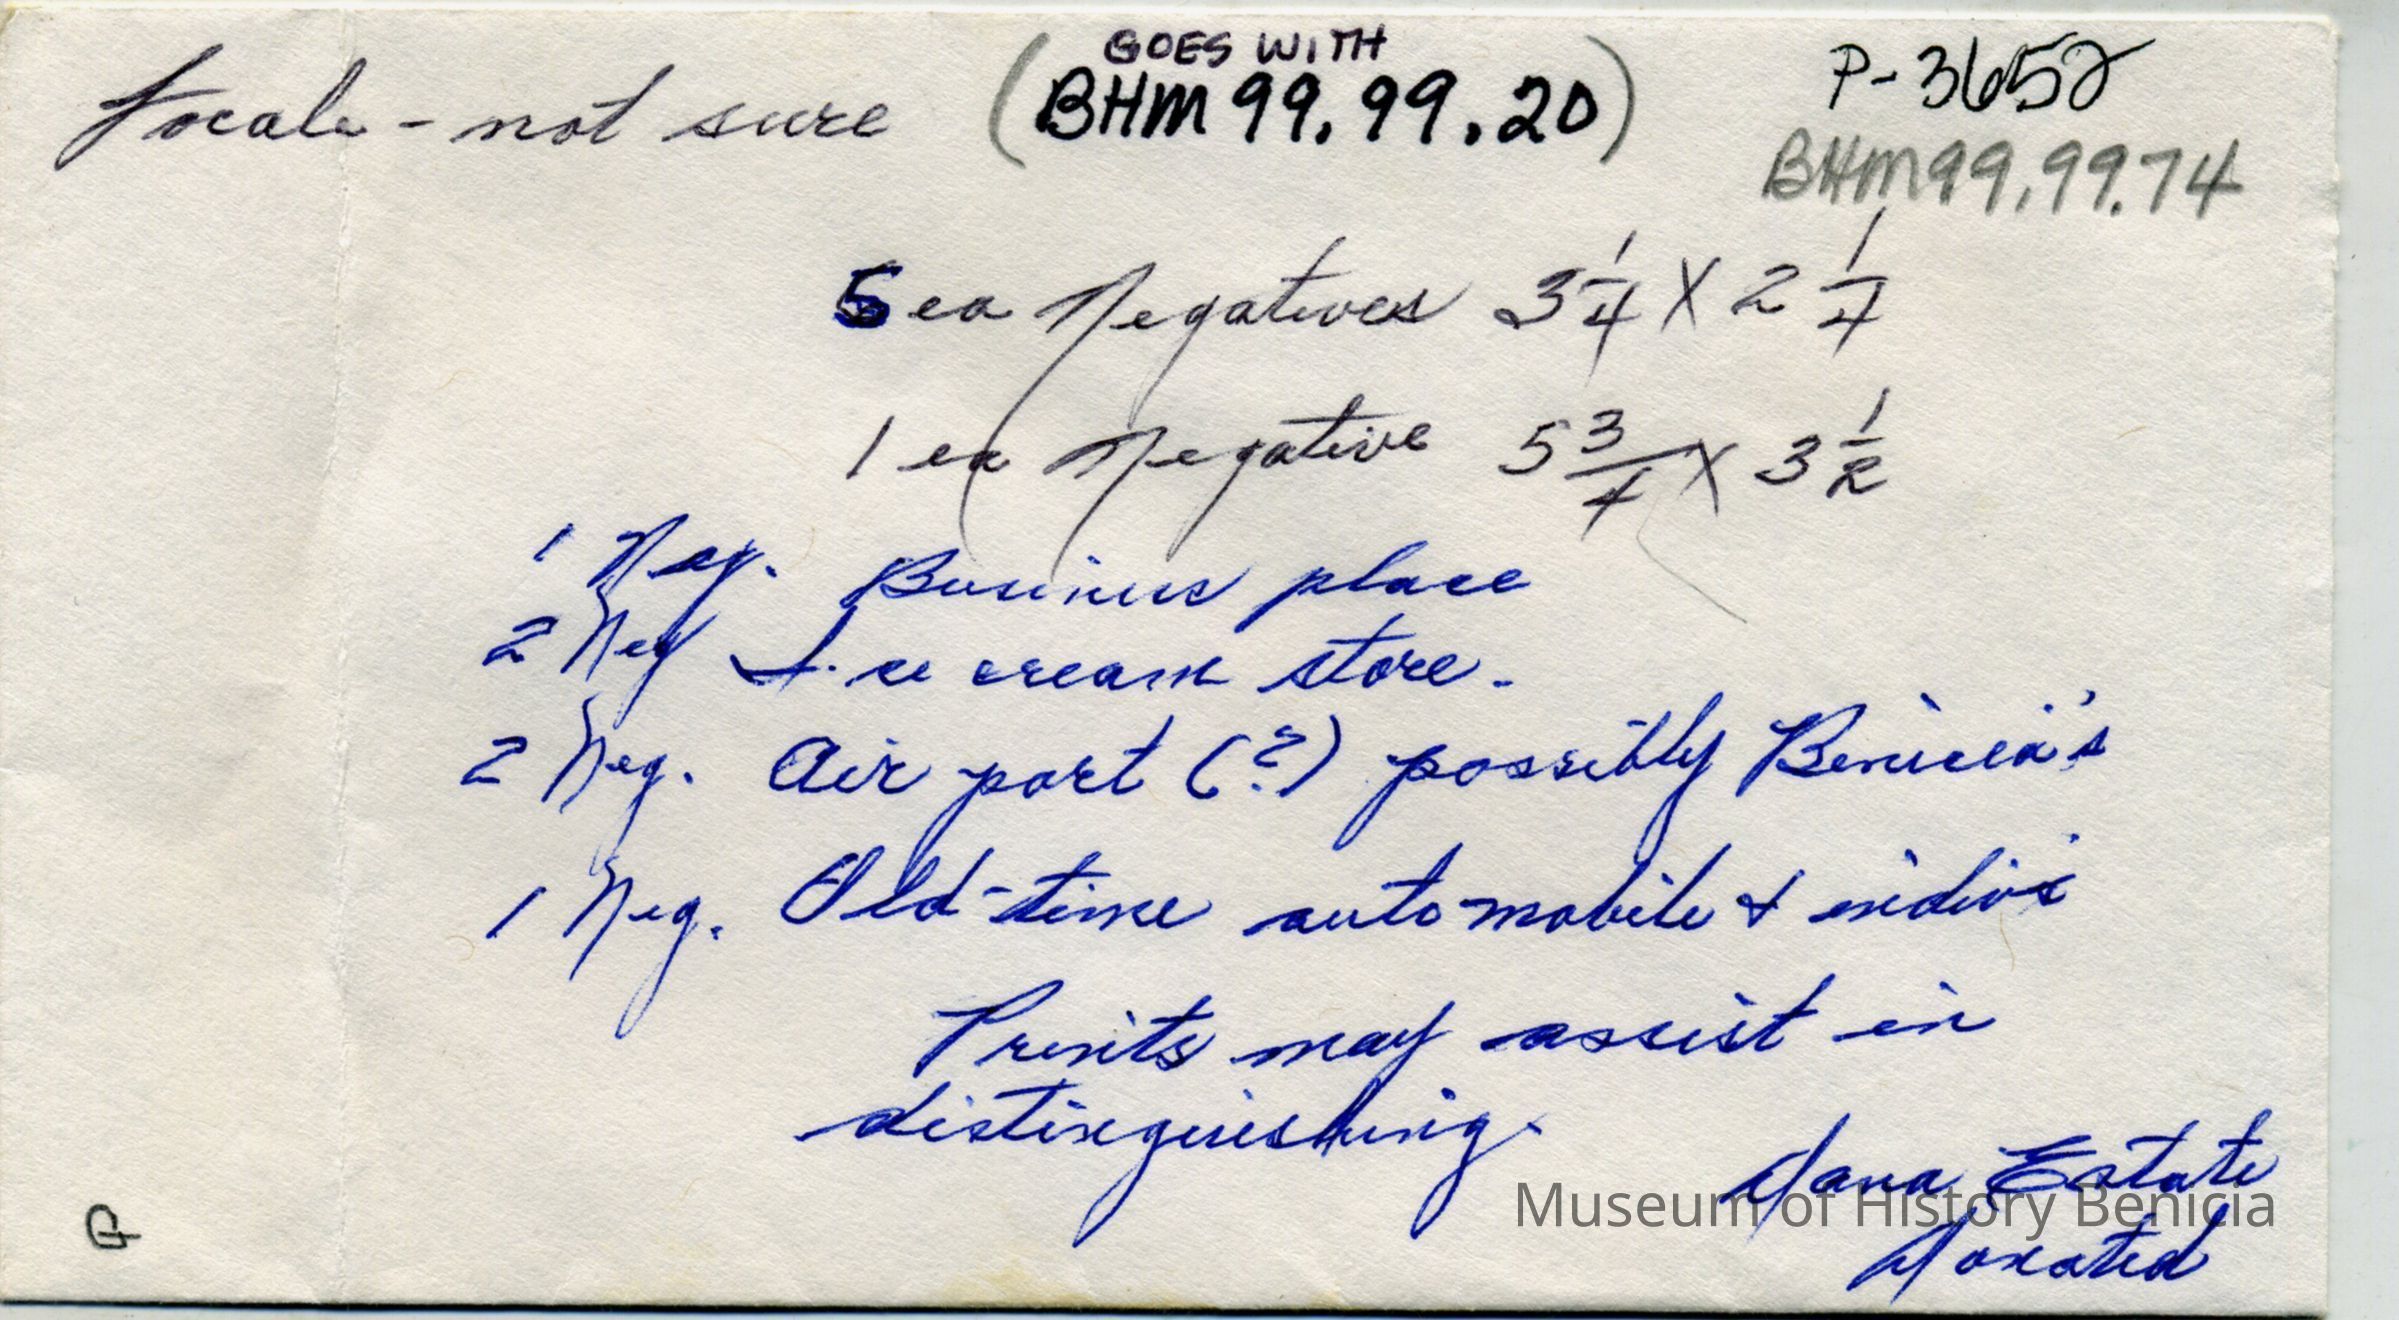 GOES WITH
Locale - not sure (BHM 99.99.20) P-3652
BHM99.99.74
5 ea Negatives 3 1/4 X 2 1/4
1 ea Negative 5 3/4 X 3 1/2
1 Neg. Business place
2 Neg Ice cream store.
2 Neg. Air port (?) possibly Benicia's
1 Neg. Old-time automobile & indiv's
Prints may assist in
distinguishing.
Dana Estate
Donated
Museum of History Benicia